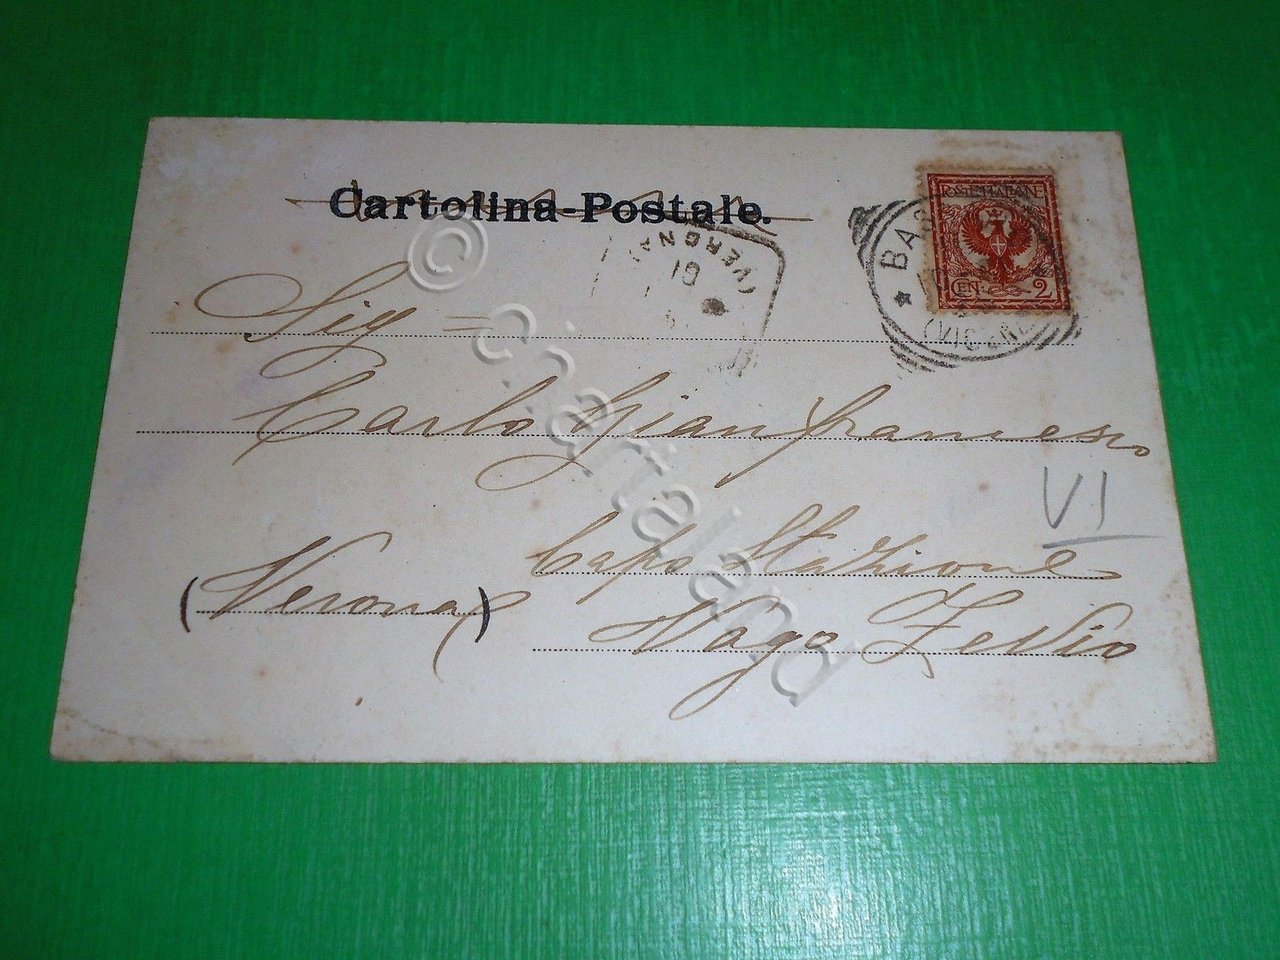 Cartolina-Postale.
POSTE ITALIANE
CEN. 2
BAS
(VICENZA)
(VERONA)
01
Sig =
Carlo Gianfrancesco
VI
Capo Stazione
(Verona)
Vago Zevio
© chartaland